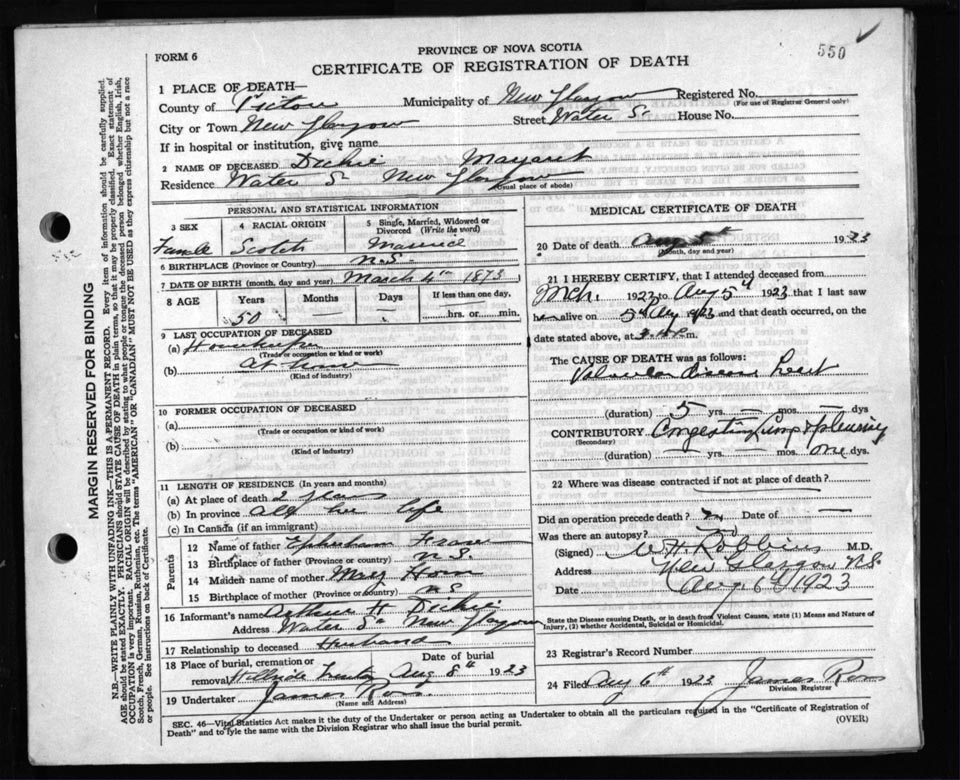 550
PROVINCE OF NOVA SCOTIA
FORM 6
CERTIFICATE OF REGISTRATION OF DEATH
1 PLACE OF DEATH—
County of Pictou Municipality of New Glasgow Registered No.
(For use of Registrar General only)
City or Town New Glasgow Street Water St House No.
If in hospital or institution, give name
2 NAME OF DECEASED Dickie Margaret
Residence Water St New Glasgow
(Usual place of abode)
PERSONAL AND STATISTICAL INFORMATION
3 SEX
Female
4 RACIAL ORIGIN
Scotch
5 Single, Married, Widowed or Divorced (Write the word)
Married
6 BIRTHPLACE (Province or Country) N.S.
7 DATE OF BIRTH (month, day and year) March 4th 1873
8 AGE Years Months Days If less than one day,
50 — — hrs. or min.
9 LAST OCCUPATION OF DECEASED
(a) Housekeeper
(Trade or occupation or kind of work)
(b) At home
(Kind of industry)
10 FORMER OCCUPATION OF DECEASED
(a)
(Trade or occupation or kind of work)
(b)
(Kind of industry)
11 LENGTH OF RESIDENCE (In years and months)
(a) At place of death 2 years
(b) In province all her life
(c) In Canada (if an immigrant)
Parents
12 Name of father Ephraham Fraser
13 Birthplace of father (Province or country) N.S.
14 Maiden name of mother Mary Horn
15 Birthplace of mother (Province or country) N.S.
16 Informant's name Arthur H Dickie
Address Water St New Glasgow
17 Relationship to deceased Husband
18 Place of burial, cremation or removal Hillside Trenton Date of burial Aug 8th 1923
19 Undertaker James Ross
(Name and Address)
MEDICAL CERTIFICATE OF DEATH
20 Date of death Aug 5th 1923
(Month, day and year)
21 I HEREBY CERTIFY, that I attended deceased from
Mch. 1923 to Aug 5th 1923 that I last saw
her alive on 5th Aug 1923 and that death occurred, on
date stated above, at m.
The CAUSE OF DEATH was as follows:
Valvular disease heart
(duration) 5 yrs. — mos. — dys
CONTRIBUTORY Congestion lung & pleurisy
(Secondary)
(duration) yrs. mos. one dys.
22 Where was disease contracted if not at place of death?
Did an operation precede death? no Date of —
Was there an autopsy? no
(Signed) W H Robbins M.D.
Address New Glasgow N.S.
Date Aug 6th 1923
State the Disease causing Death, or in death from Violent Causes, state (1) Means and Nature of
Injury, (2) whether Accidental, Suicidal or Homicidal.
23 Registrar's Record Number
24 Filed Aug 6th 1923 James Ross
Division Registrar
SEC. 46—Vital Statistics Act makes it the duty of the Undertaker or person acting as Undertaker to obtain all the particulars required in the "Certificate of Registration of
Death" and to fyle the same with the Division Registrar who shall issue the burial permit.
(OVER)
MARGIN RESERVED FOR BINDING
N.B.—WRITE PLAINLY WITH UNFADING INK—THIS IS A PERMANENT RECORD. Every item of information should be carefully supplied.
AGE should be stated EXACTLY. PHYSICIANS should STATE CAUSE OF DEATH in plain terms, so that it may be properly classified. Exact statement of
OCCUPATION is very important. RACIAL ORIGIN will be described by stating to what people or tongue the deceased person belonged whether English, Irish,
Scotch, French, German, Russian, Ruthenian, etc. The terms "AMERICAN" OR "CANADIAN" MUST NOT BE USED as they express citizenship but not a race
or people. See instructions on back of Certificate.